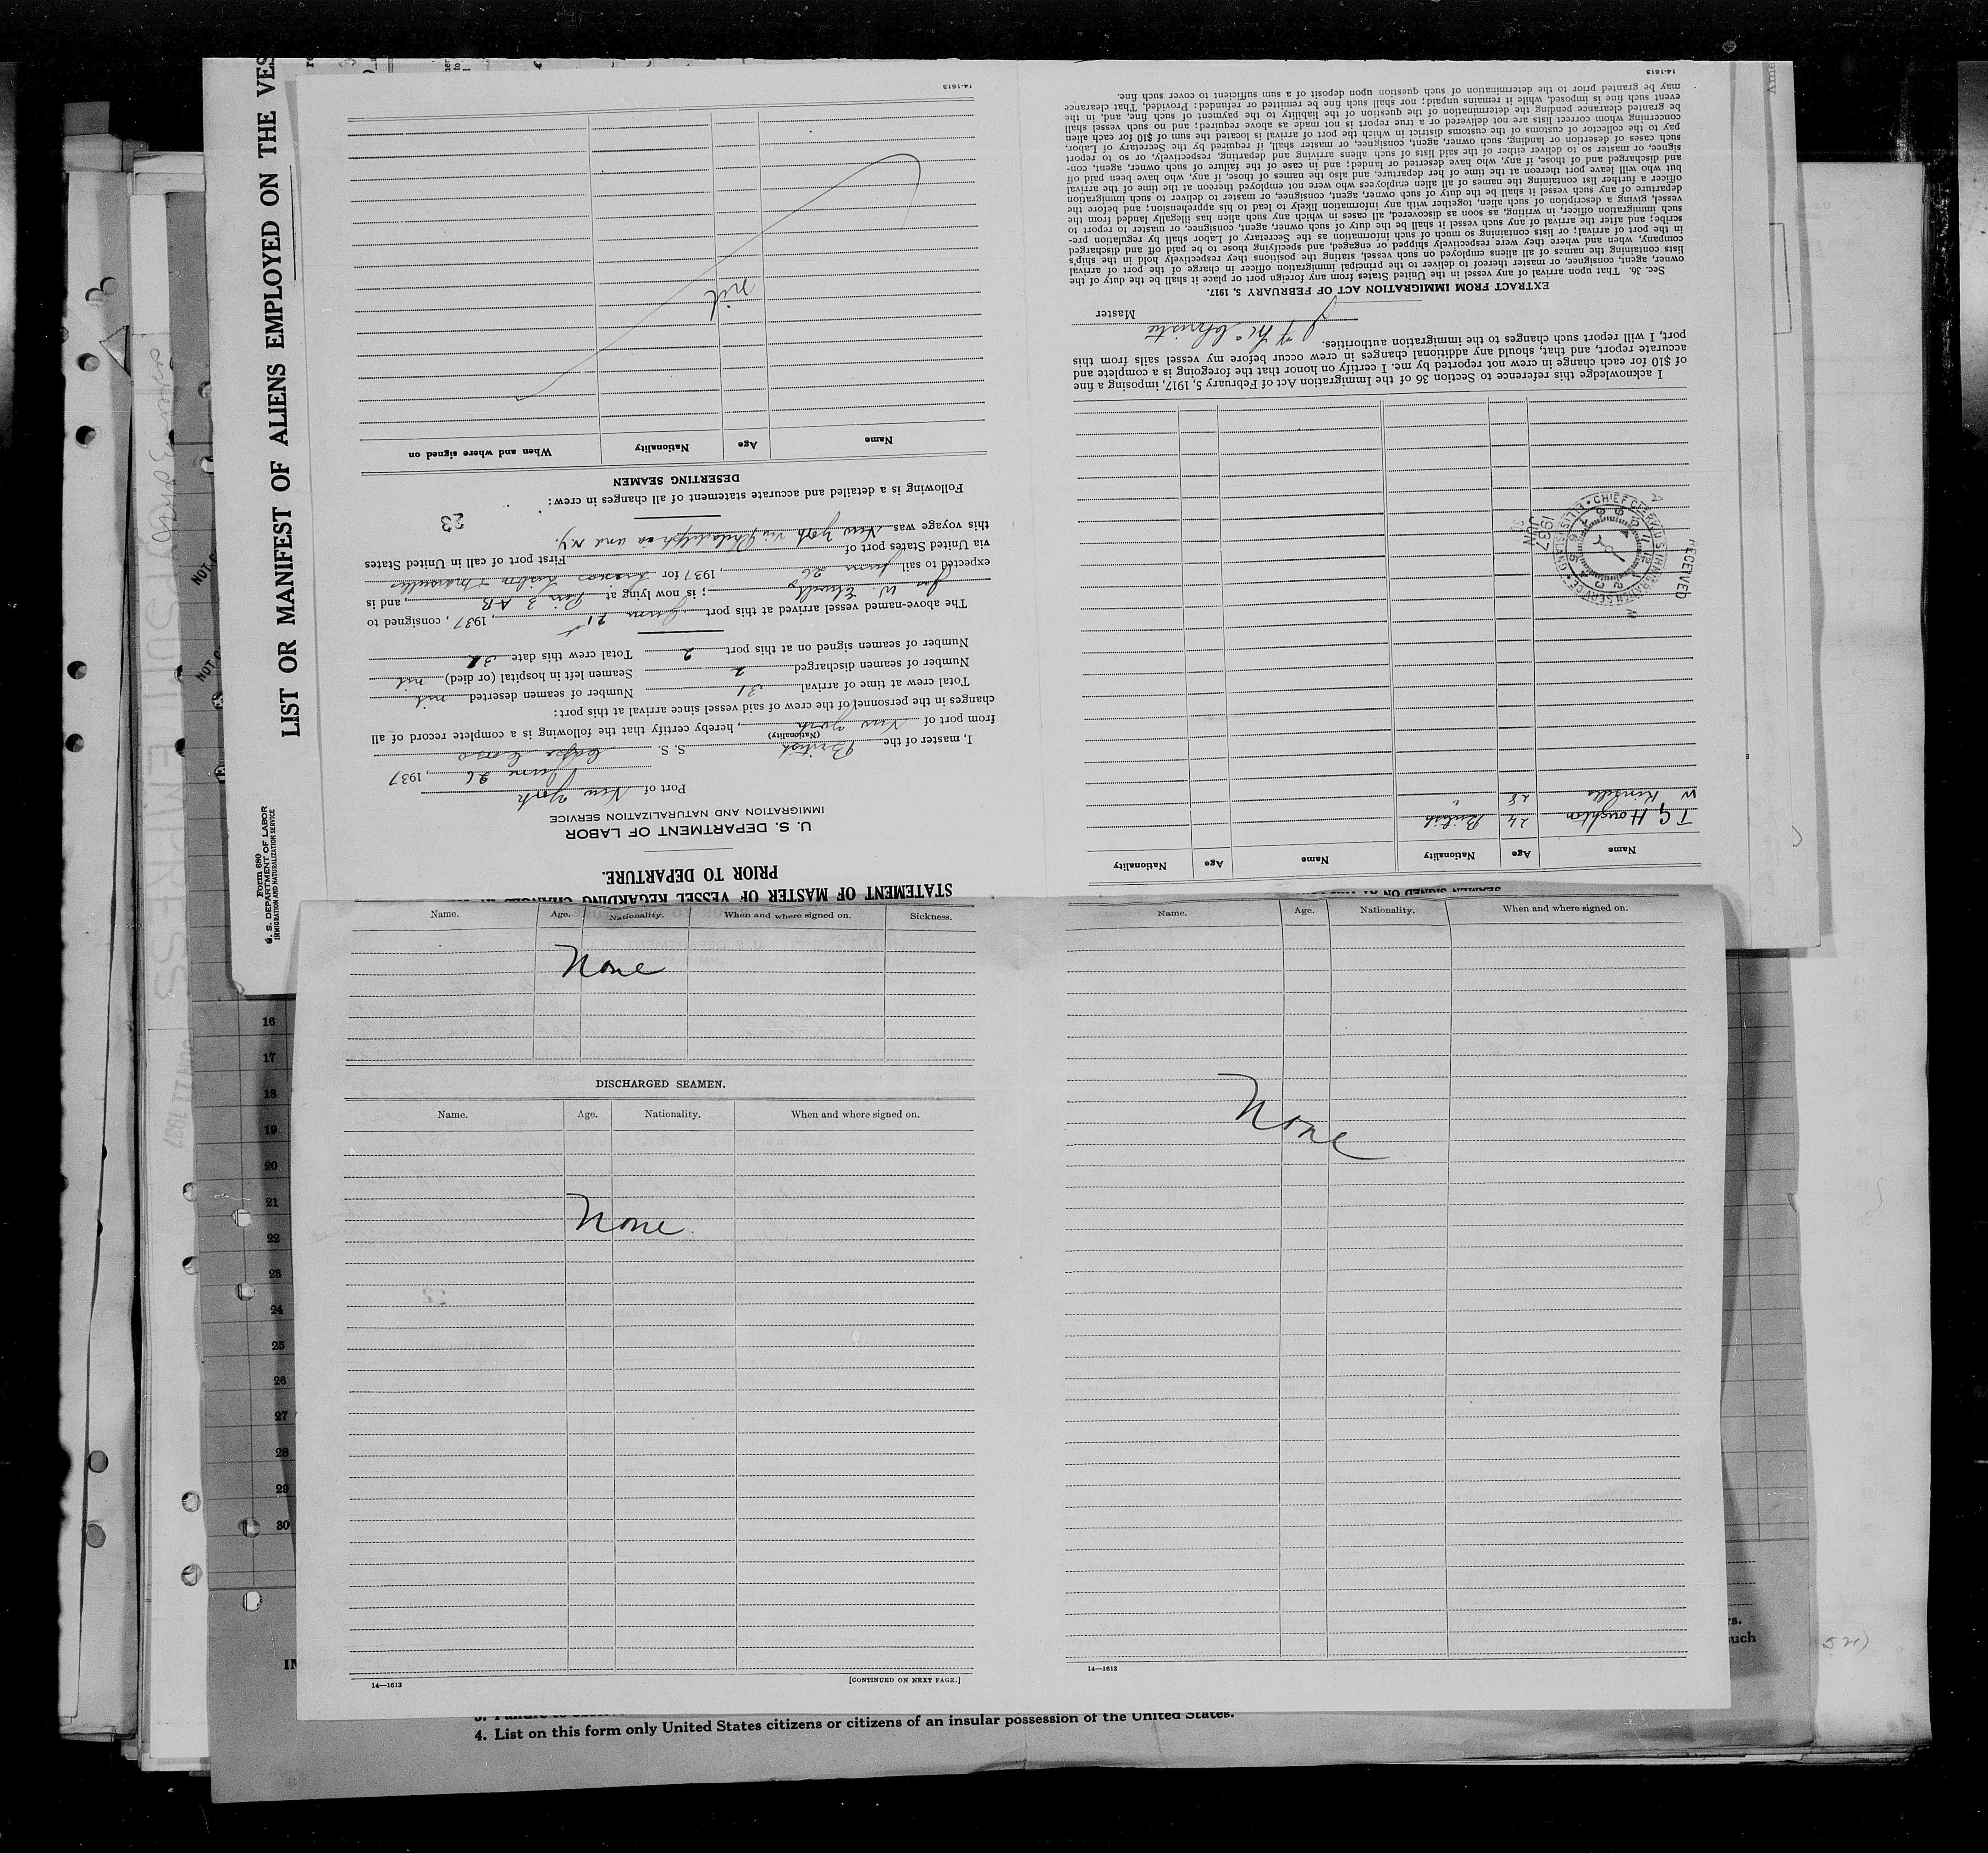 LIST OR MANIFEST OF ALIENS EMPLOYED ON THE VES
Form 680
U. S. DEPARTMENT OF LABOR
IMMIGRATION AND NATURALIZATION SERVICE
STATEMENT OF MASTER OF VESSEL REGARDING CHANGES
PRIOR TO DEPARTURE.
U. S. DEPARTMENT OF LABOR
IMMIGRATION AND NATURALIZATION SERVICE
Port of New York
June 26, 1937
I, master of the British S. S. Cape Corso
(Nationality)
from port of New York, hereby certify that the following is a complete record of all
changes in the personnel of the crew of said vessel since arrival at this port:
Total crew at time of arrival 31 Number of seamen deserted nil
Number of seamen discharged 2 Seamen left in hospital (or died) nil
Number of seamen signed on at this port 2 Total crew this date 31
The above-named vessel arrived at this port June 21, 1937, consigned to
Jas W. Elwell; is now lying at Pier 3 A.B., and is
expected to sail June 26, 1937 for
via United States port of First port of call in United States
this voyage was New York via Philadelphia and N.Y.
23
Following is a detailed and accurate statement of all changes in crew:
DESERTING SEAMEN
Name Age Nationality When and where signed on
nil
14-1613
SEAMEN SIGNED ON AT
Name Age Nationality Name Age Nationality
T G Houghton 24 British
W Kinsella 28 "
RECEIVED
A M
CHIEF CLERK U S IMMIGRATION SERVICE
ELLIS ISLAND
1937
JUN
I acknowledge this reference to Section 36 of the Immigration Act of February 5, 1917, imposing a fine
of $10 for each change in crew not reported by me. I certify on honor that the foregoing is a complete and
accurate report, and that, should any additional changes in crew occur before my vessel sails from this
port, I will report such changes to the immigration authorities.
Master
EXTRACT FROM IMMIGRATION ACT OF FEBRUARY 5, 1917.
Sec. 36. That upon arrival of any vessel in the United States from any foreign port or place it shall be the duty of the
owner, agent, consignee, or master thereof to deliver to the principal immigration officer in charge of the port of arrival
lists containing the names of all aliens employed on such vessel, stating the positions they respectively hold in the ship's
company, when and where they were respectively shipped or engaged, and specifying those to be paid off and discharged
in the port of arrival; or lists containing so much of such information as the Secretary of Labor shall by regulation pre-
scribe; and after the arrival of any such vessel it shall be the duty of such owner, agent, consignee, or master to report to
such immigration officer, in writing, as soon as discovered, all cases in which any such alien has illegally landed from the
vessel, giving a description of such alien, together with any information likely to lead to his apprehension; and before the
departure of any such vessel it shall be the duty of such owner, agent, consignee, or master to deliver to such immigration
officer a further list containing the names of all alien employees who were not employed thereon at the time of the arrival
but who will leave port thereon at the time of her departure, and also the names of those, if any, who have been paid off
and discharged and of those, if any, who have deserted or landed; and in case of the failure of such owner, agent, con-
signee, or master so to deliver either of the said lists of such aliens arriving and departing, respectively, or so to report
such cases of desertion or landing, such owner, agent, consignee, or master shall, if required by the Secretary of Labor,
pay to the collector of customs of the customs district in which the port of arrival is located the sum of $10 for each alien
concerning whom correct lists are not delivered or a true report is not made as above required; and no such vessel shall
be granted clearance pending the determination of the question of the liability to the payment of such fine, and, in the
event such fine is imposed, while it remains unpaid; nor shall such fine be remitted or refunded: Provided, That clearance
may be granted prior to the determination of such question upon deposit of a sum sufficient to cover such fine.
14-1613
Name. Age. Nationality. When and where signed on. Sickness.
None
DISCHARGED SEAMEN.
Name. Age. Nationality. When and where signed on.
None
14—1613
[CONTINUED ON NEXT PAGE.]
Name. Age. Nationality. When and where signed on.
None
14—1613
16
17
18
19
20
21
22
23
24
25
26
27
28
29
30
rs.
such
4. List on this form only United States citizens or citizens of an insular possession of the United States.